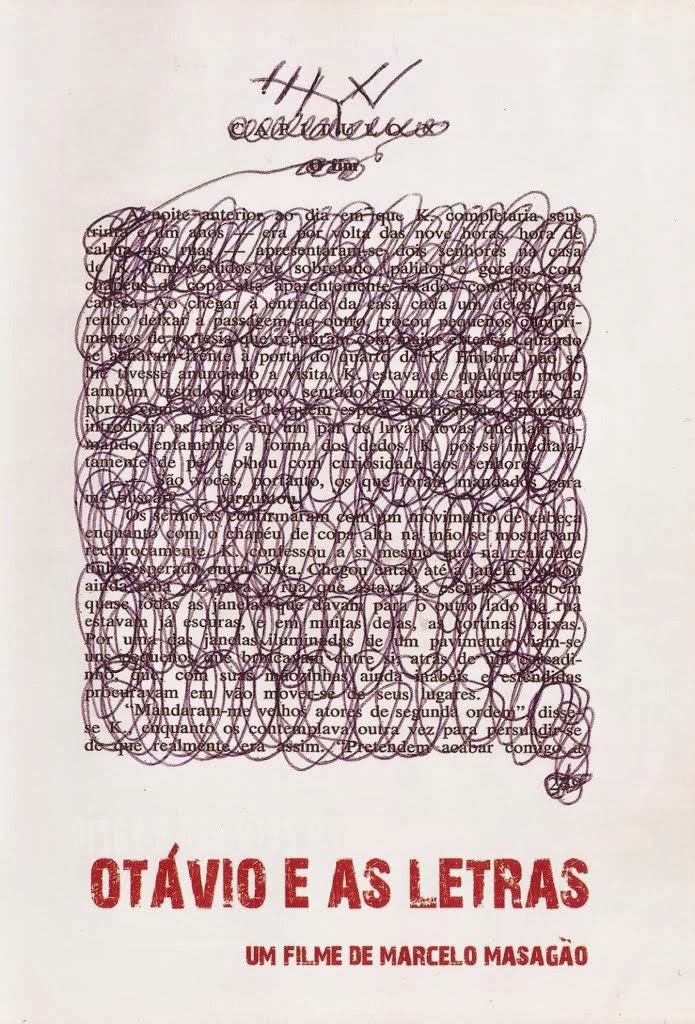 CAPÍTULO X
O fim
A noite anterior ao dia em que K. completaria seus
trinta e um anos — era por volta das nove horas, hora de
calma nas ruas — apresentaram-se dois senhores na casa
de K. Iam vestidos de sobretudo, pálidos e gordos, com
chapéus de copa alta aparentemente fixados com força na
cabeça. Ao chegar à entrada da casa cada um deles, que-
rendo deixar a passagem ao outro, trocou pequenos cumpri-
mentos de cortesia que repetiram com maior extensão quando
se acharam frente à porta do quarto de K. Embora não se
lhe tivesse anunciado a visita, K. estava de qualquer modo
também vestido de preto, sentado em uma cadeira perto da
porta, com a atitude de quem espera um hóspede, enquanto
introduzia as mãos em um par de luvas novas que iam to-
mando lentamente a forma dos dedos. K. pôs-se imediata-
tamente de pé e olhou com curiosidade aos senhores.
— São vocês, portanto, os que foram mandados para
me buscar? — perguntou.
Os senhores confirmaram com um movimento de cabeça
enquanto com o chapéu de copa alta na mão se mostravam
reciprocamente. K. confessou a si mesmo que na realidade
tinha esperado outra visita. Chegou então até a janela e olhou
ainda uma vez para a rua que estava às escuras. Também
quase todas as janelas que davam para o outro lado da rua
estavam já escuras, e em muitas delas, as cortinas baixas.
Por uma das janelas iluminadas de um pavimento viam-se
uns pequenos que brincavam entre si atrás de um cercadi-
nho, que com suas mãozinhas ainda inábeis e estendidas
procuravam em vão mover-se de seus lugares.
“Mandaram-me velhos atores de segunda ordem”, disse-
se K., enquanto os contemplava outra vez para persuadir-se
de que realmente era assim. “Pretendem acabar comigo a
249
OTÁVIO E AS LETRAS
UM FILME DE MARCELO MASAGÃO